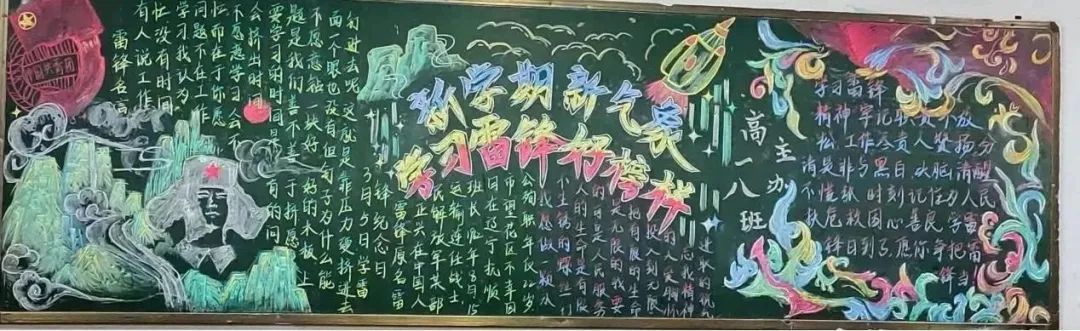 中国共青团
雷锋名言
有人说工作
忙没有时间
学习我认为
问题不在工作
忙而在于你愿
不愿意学习会不
会挤出时间
要学习的时间是有的问
题是我们善不善于挤愿
不愿意钻一块好好的木板上
面一个眼也没有但钉子为什么能
钉进去呢这就是靠压力硬挤进去
新学期新气象
学习雷锋好榜样
3月5日学雷
锋纪念日
雷锋原名雷
正兴在中国人
民解放军某部
运输连任战士
班长
8月15
日在辽宁抚顺
市望花区不幸因
公殉职年仅22岁
我愿做一颗永
不生锈的螺丝钉
人的生命是有限
的可是为人民服务
是无限的我要
把有限的生命
投入到无限
高一八班
主办
学习雷锋
精神牢记职责不放
松工作尽责人赞扬分
清是非与黑白头脑清醒
不懂纵时刻记住为人民
扶危救困心善良学雷
锋日到了愿你争把雷
锋当